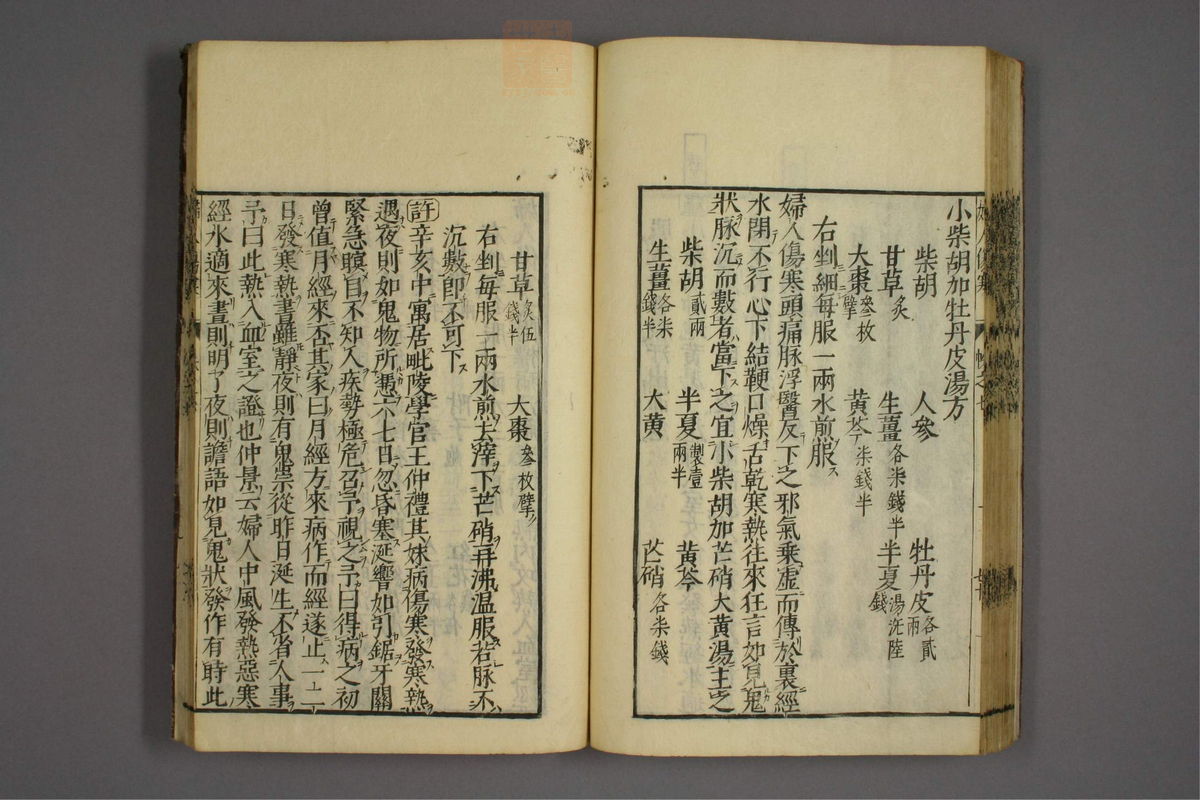 小柴胡加牡丹皮湯方
柴胡 人參 牡丹皮各貳兩
甘草炙 生薑各柒錢半 半夏湯洗陸錢
大棗參枚擘 黃芩柒錢半
右剉細每服一兩水煎服ス
婦人傷寒頭痛脉浮醫反下之邪氣乗虚而傳於裏經
水閉不行心下結鞕口燥舌乾寒熱往來狂言如見鬼
狀脉沉而數者當下之宜小柴胡加芒硝大黃湯主之
柴胡貳兩 半夏製壹兩半 黃芩
生薑各柒錢半 大黃 芒硝各柒錢
甘草炙伍錢半 大棗參枚擘
右剉每服一兩水煎去滓下芒硝再沸温服若脉不
沉數卽不可下
許辛亥中寓居毗陵學官王仲禮其妹病傷寒發寒熱
遇夜則如鬼物所憑六七日忽昏塞涎響如引鋸牙關
緊急瞑目不知人疾勢極危召予視之予曰得病之初
曾值月經來否其家曰月經方來病作而經遂止一二
日發寒熱晝雖靜夜則有鬼祟從昨日涎生不省人事
予曰此熱入血室之證也仲景云婦人中風發熱惡寒
經水適來晝則明了夜則譫語如見鬼狀發作有時此